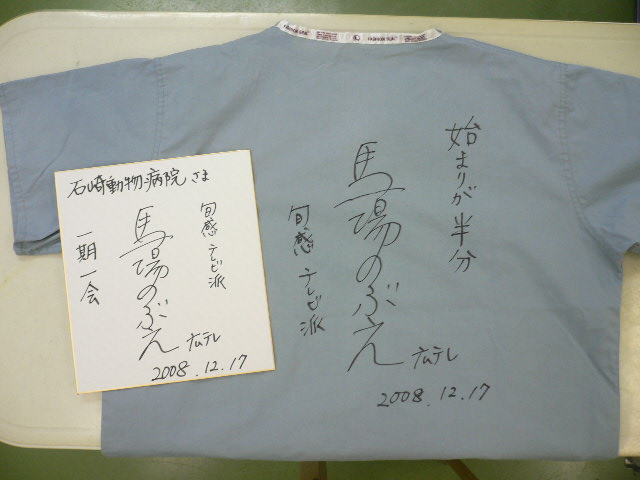 石崎動物病院さま
旬感テレビ派
馬場のぶえ
広テレ
一期一会
2008.12.17
始まりが半分
馬場のぶえ
広テレ
旬感テレビ派
2008.12.17